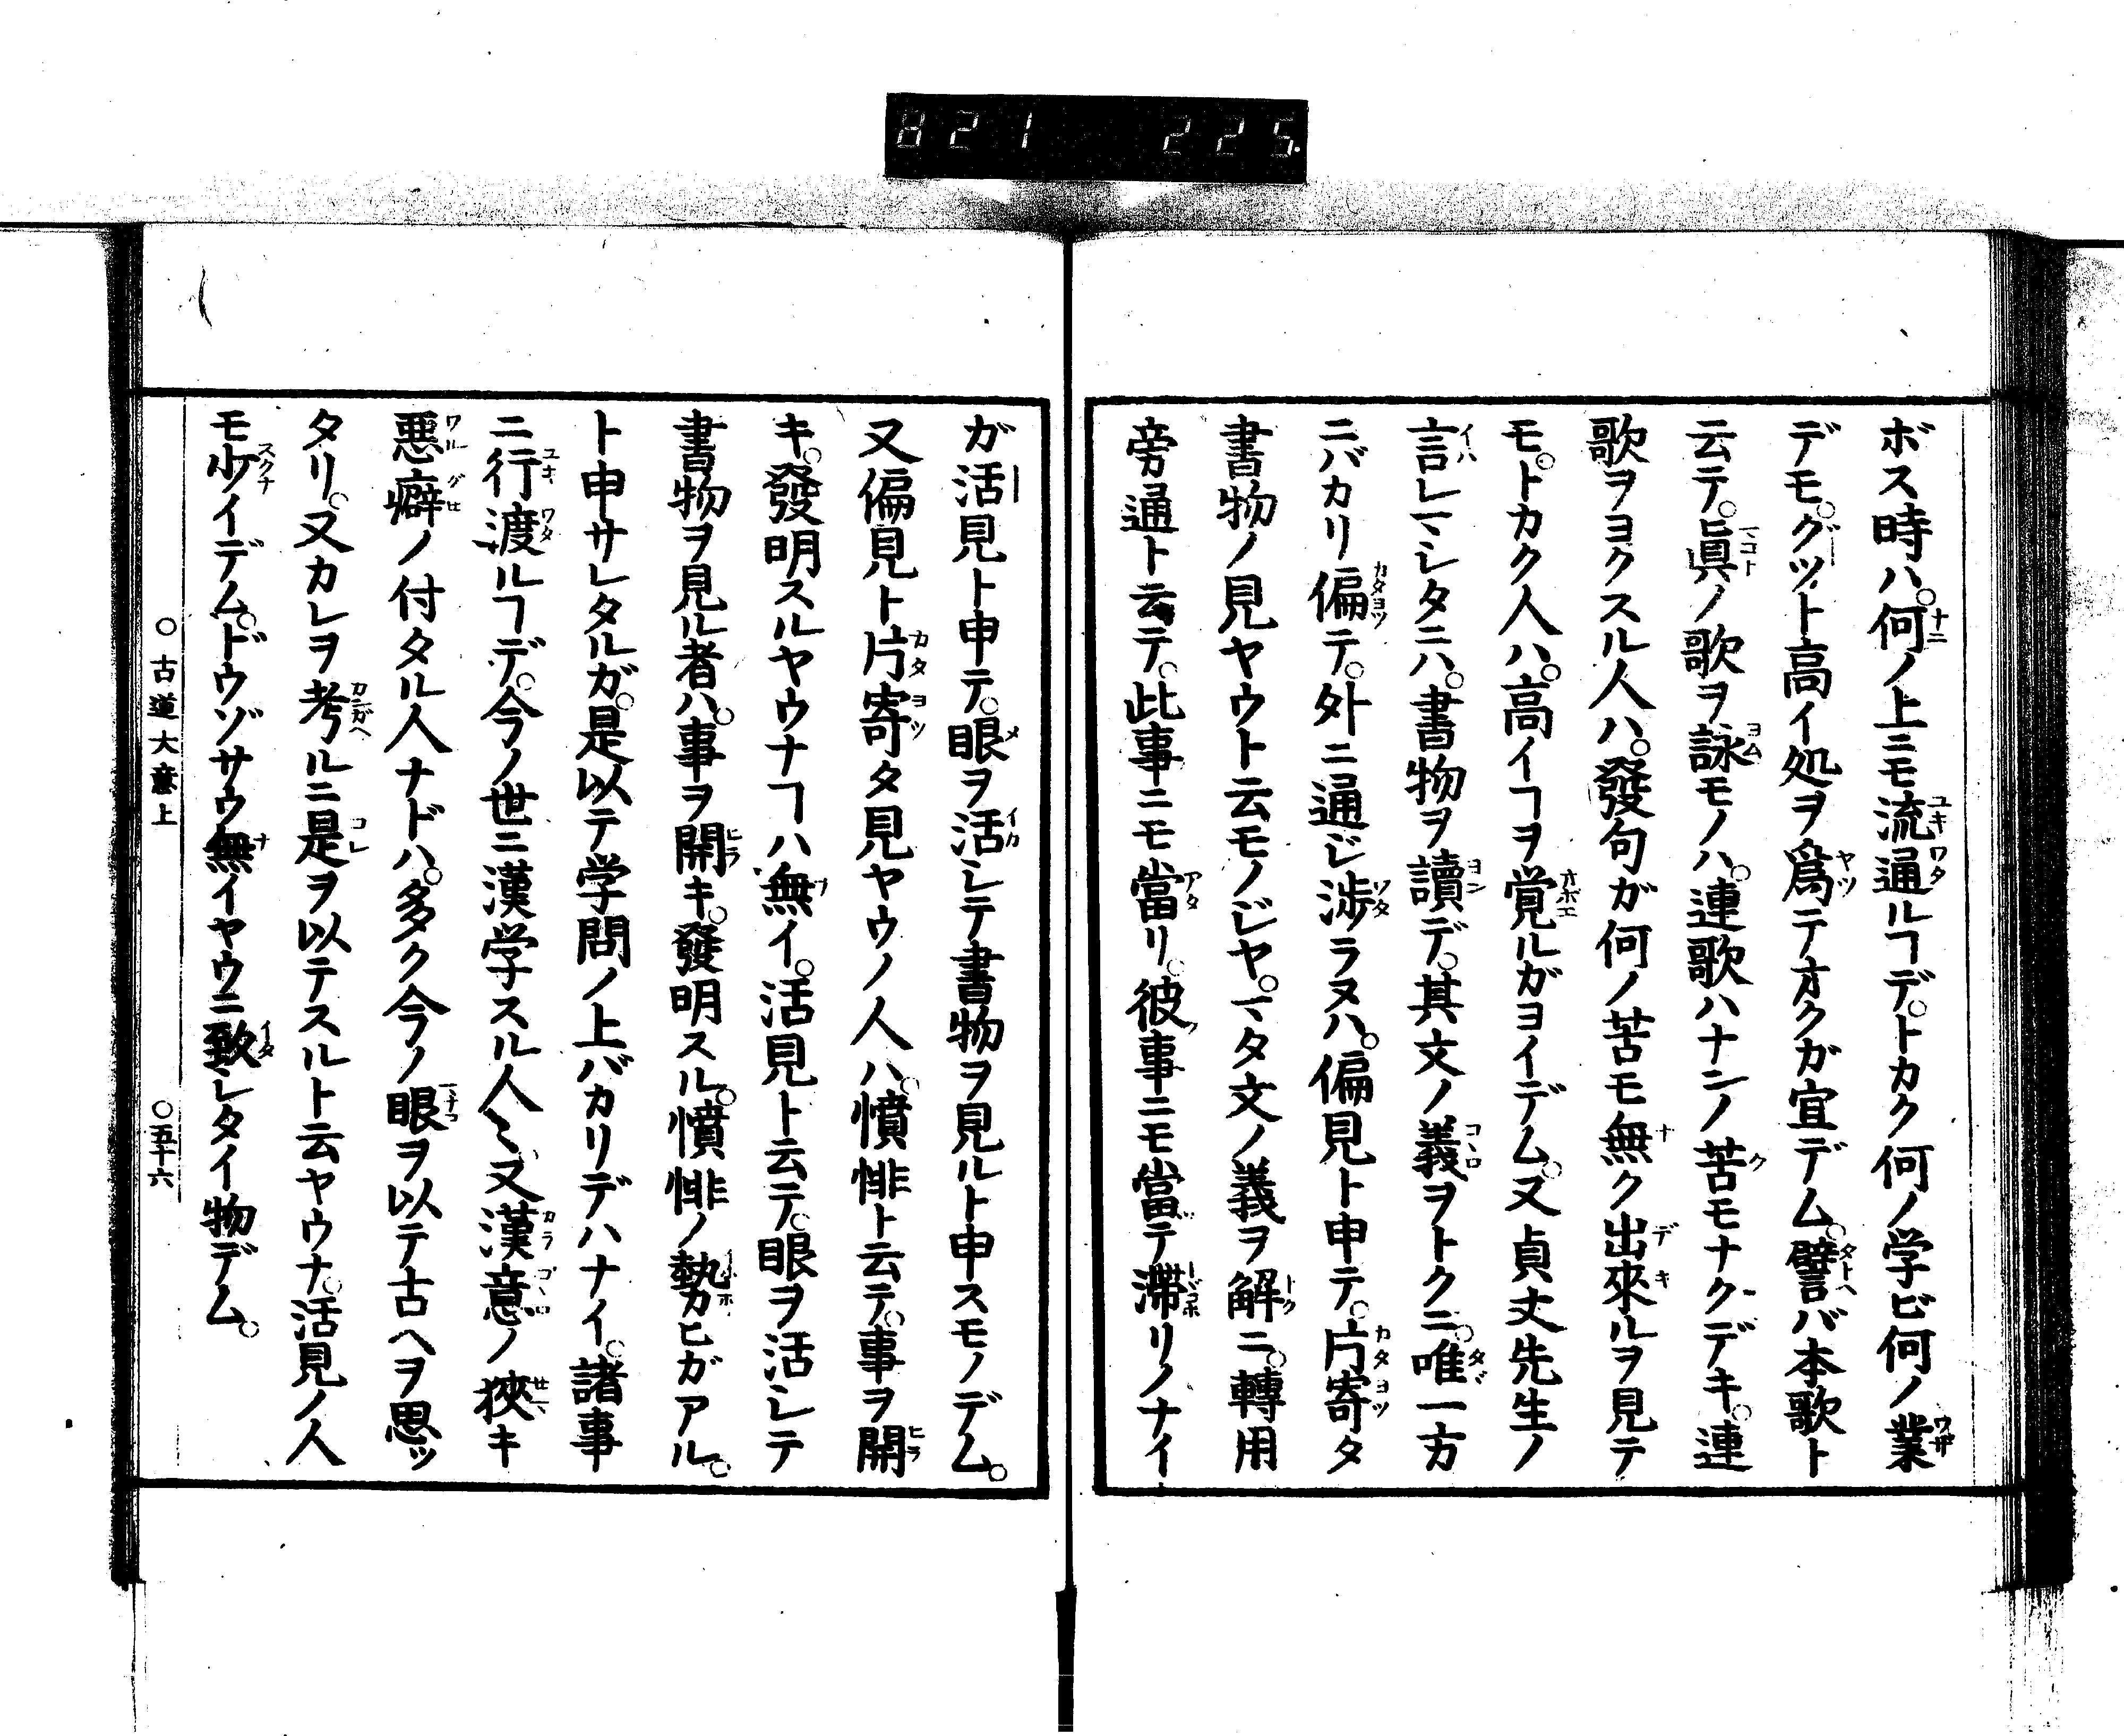 821 225
ボス時ハ。何ノ上ニモ流通ルヿデ。トカク何ノ学ビ何ノ業
デモ。グツト高イ処ヲ爲テオクガ宜デム。譬バ本歌ト
云テ。眞ノ歌ヲ詠モノハ。連歌ハナンノ苦モナクデキ。連
歌ヲヨクスル人ハ。發句ガ何ノ苦モ無ク出來ルヲ見テ
モ。トカク人ハ。高イヿヲ覚ルガヨイデム。又貞丈先生ノ
言レマシタニハ。書物ヲ讀デ。其文ノ義ヲトクニ。唯一方
ニバカリ偏テ。外ニ通ジ渉ラヌハ。偏見ト申テ。片寄タ
書物ノ見ヤウト云モノジヤ。マタ文ノ義ヲ解ニ。轉用
旁通ト云テ。此事ニモ當リ。彼事ニモ當テ滞リノナイ
ガ活見ト申テ。眼ヲ活シテ書物ヲ見ルト申スモノデム。
又偏見ト片寄タ見ヤウノ人ハ。憤悱ト云テ。事ヲ開
キ。發明スルヤウナヿハ無イ。活見ト云テ。眼ヲ活シテ
書物ヲ見ル者ハ。事ヲ開キ。發明スル。憤悱ノ勢ヒガアル。
ト申サレタルガ。是以テ学問ノ上バカリデハナイ。諸事
ニ行渡ルヿデ。今ノ世ニ漢学スル人〻又漢意ノ狹キ
悪癖ノ付タル人ナドハ。多ク今ノ眼ヲ以テ古ヘヲ思ツ
タリ。又カレヲ考ルニ是ヲ以テスルト云ヤウナ。活見ノ人
モ少イデム。ドウゾサウ無イヤウニ致シタイ物デム。
○古道大意上 ○五十六